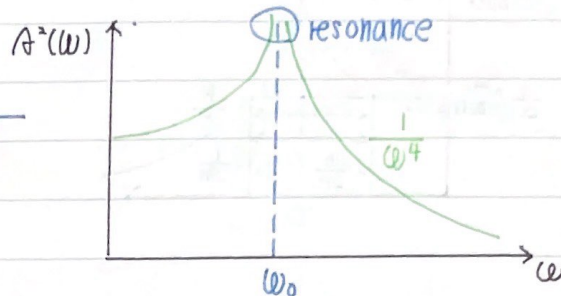 A²(ω)
resonance
1/ω⁴
ω₀
ω